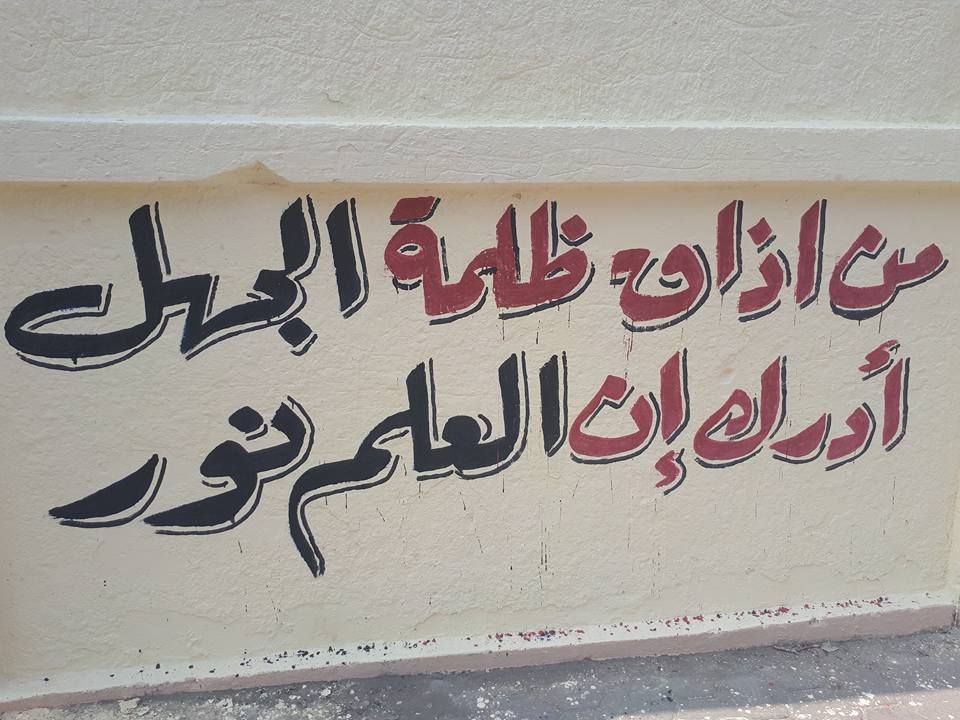 من اذاق ظلمة الجهل
أدرك إن العلم نور